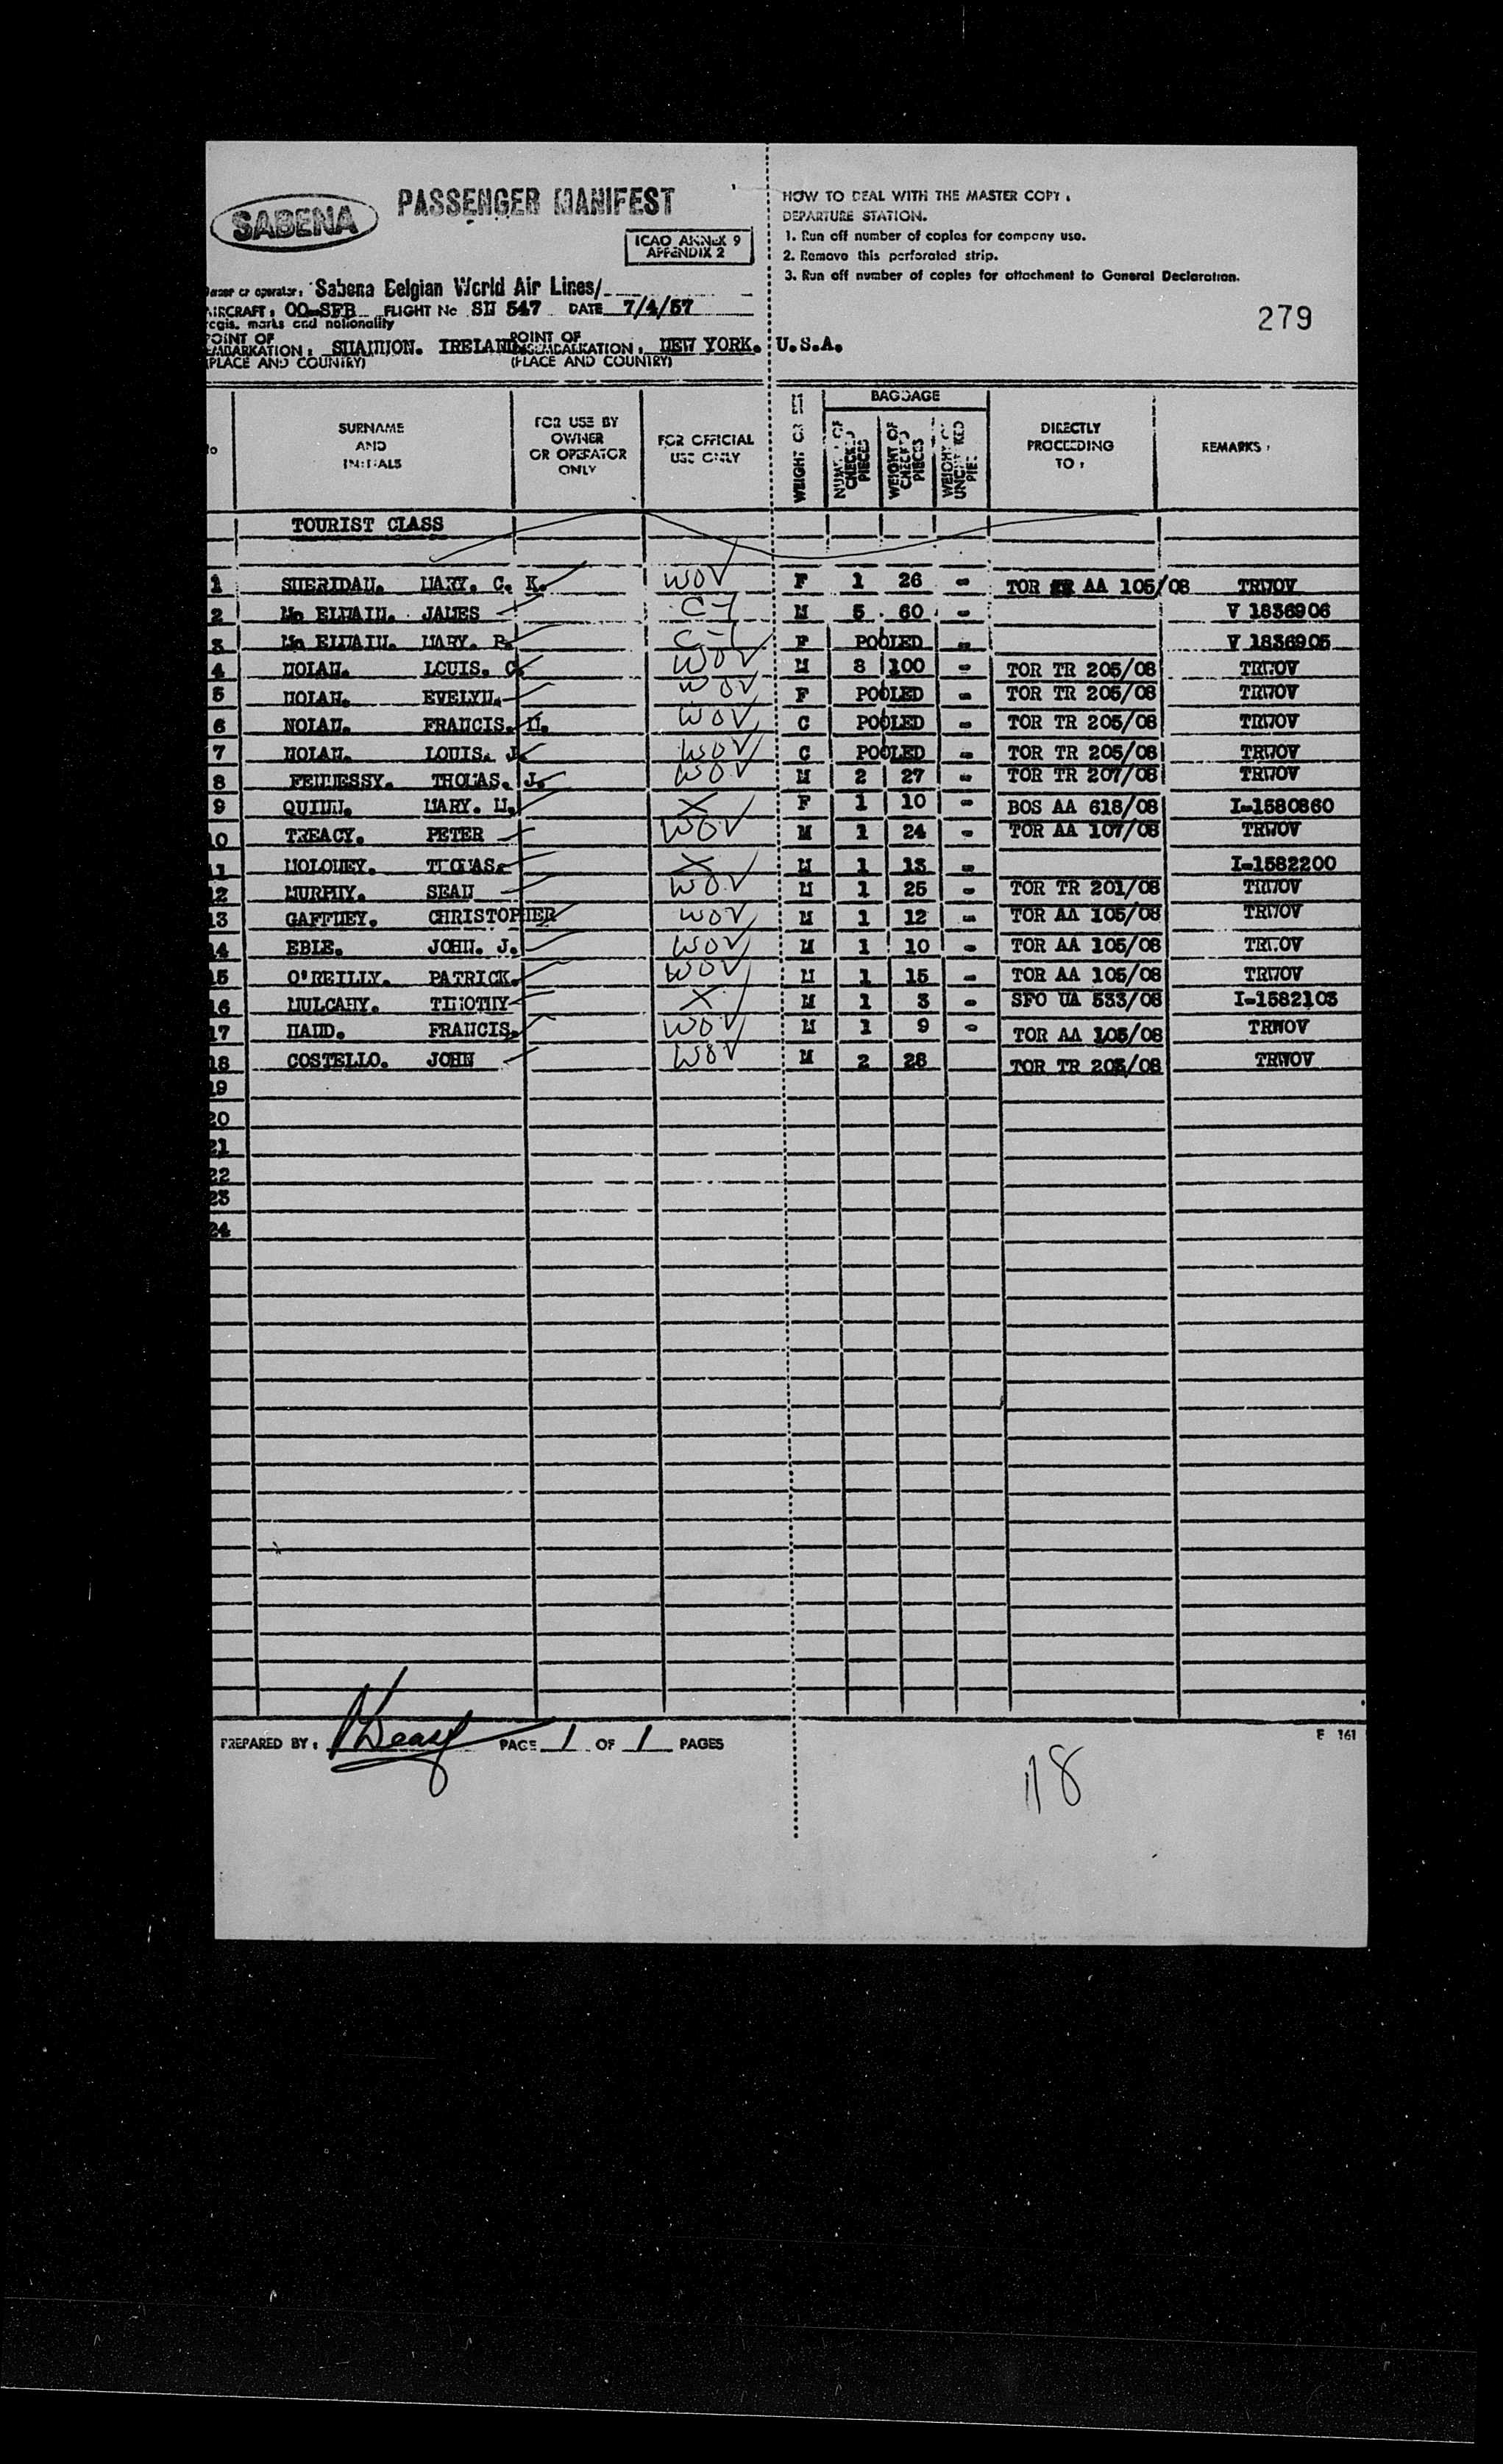 SABENA
PASSENGER MANIFEST
ICAO ANNEX 9
APPENDIX 2
HOW TO DEAL WITH THE MASTER COPY.
DEPARTURE STATION.
1. Run off number of copies for company use.
2. Remove this perforated strip.
3. Run off number of copies for attachment to General Declaration.
279
or operator: Sabena Belgian World Air Lines/
AIRCRAFT: OO-SFB FLIGHT No SN 547 DATE 7/4/57
regis. marks and nationality
POINT OF EMBARKATION: SHANNON. IRELAND. POINT OF DISEMBARKATION: NEW YORK. U.S.A.
(PLACE AND COUNTRY) (PLACE AND COUNTRY)
No SURNAME AND INITIALS FOR USE BY OWNER OR OPERATOR ONLY FOR OFFICIAL USE ONLY WEIGHT OR BAGGAGE NUMBER OF CHECKED PIECES WEIGHT OF CHECKED PIECES WEIGHT OF UNCHECKED PIE DIRECTLY PROCEEDING TO: REMARKS:
TOURIST CLASS
1 SHERIDAN. MARY. C. K. WOV F 1 26 - TOR AA 105/08 TRWOV
2 Mc ELWAIN. JAMES C-1 M 5 60 - V 1836906
3 Mc ELWAIN. MARY. P. C-1 F POOLED - V 1836905
4 NOLAN. LOUIS. C. WOV M 8 100 - TOR TR 205/08 TRWOV
5 NOLAN. EVELYN. WOV F POOLED - TOR TR 205/08 TRWOV
6 NOLAN. FRANCIS. N. WOV C POOLED - TOR TR 205/08 TRWOV
7 NOLAN. LOUIS. J. WOV C POOLED - TOR TR 205/08 TRWOV
8 FENNESSY. THOMAS. J. WOV M 2 27 - TOR TR 207/08 TRWOV
9 QUINN. MARY. X F 1 10 - BOS AA 618/08 I-1580860
10 TREACY. PETER WOV M 1 24 - TOR AA 107/08 TRWOV
11 MOLONEY. THOMAS. X M 1 13 - I-1582200
12 MURPHY. SEAN WOV M 1 25 - TOR TR 201/08 TRWOV
13 GAFFNEY. CHRISTOPHER WOV M 1 12 - TOR AA 105/08 TRWOV
14 EBLE. JOHN. J. WOV M 1 10 - TOR AA 105/08 TRWOV
15 O'REILLY. PATRICK. WOV M 1 15 - TOR AA 105/08 TRWOV
16 MULCAHY. TIMOTHY X M 1 3 - SFO UA 533/08 I-1582103
17 HAND. FRANCIS. WOV M 1 9 - TOR AA 105/08 TRWOV
18 COSTELLO. JOHN WOV M 2 28 TOR TR 203/08 TRWOV
19
20
21
22
23
24
PREPARED BY: PAGE 1 OF 1 PAGES
F 161
18